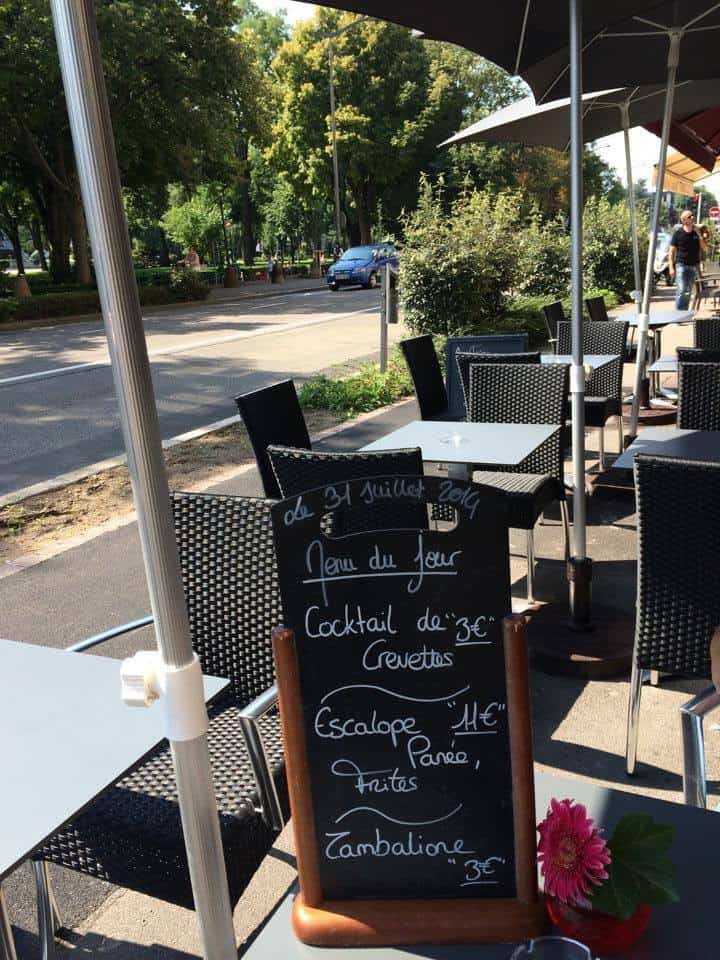 Le 31 Juillet 2014
Menu du Jour
Cocktail de "3€"
Crevettes
Escalope "11€"
Panée,
Frites
Zambalione
"3€"